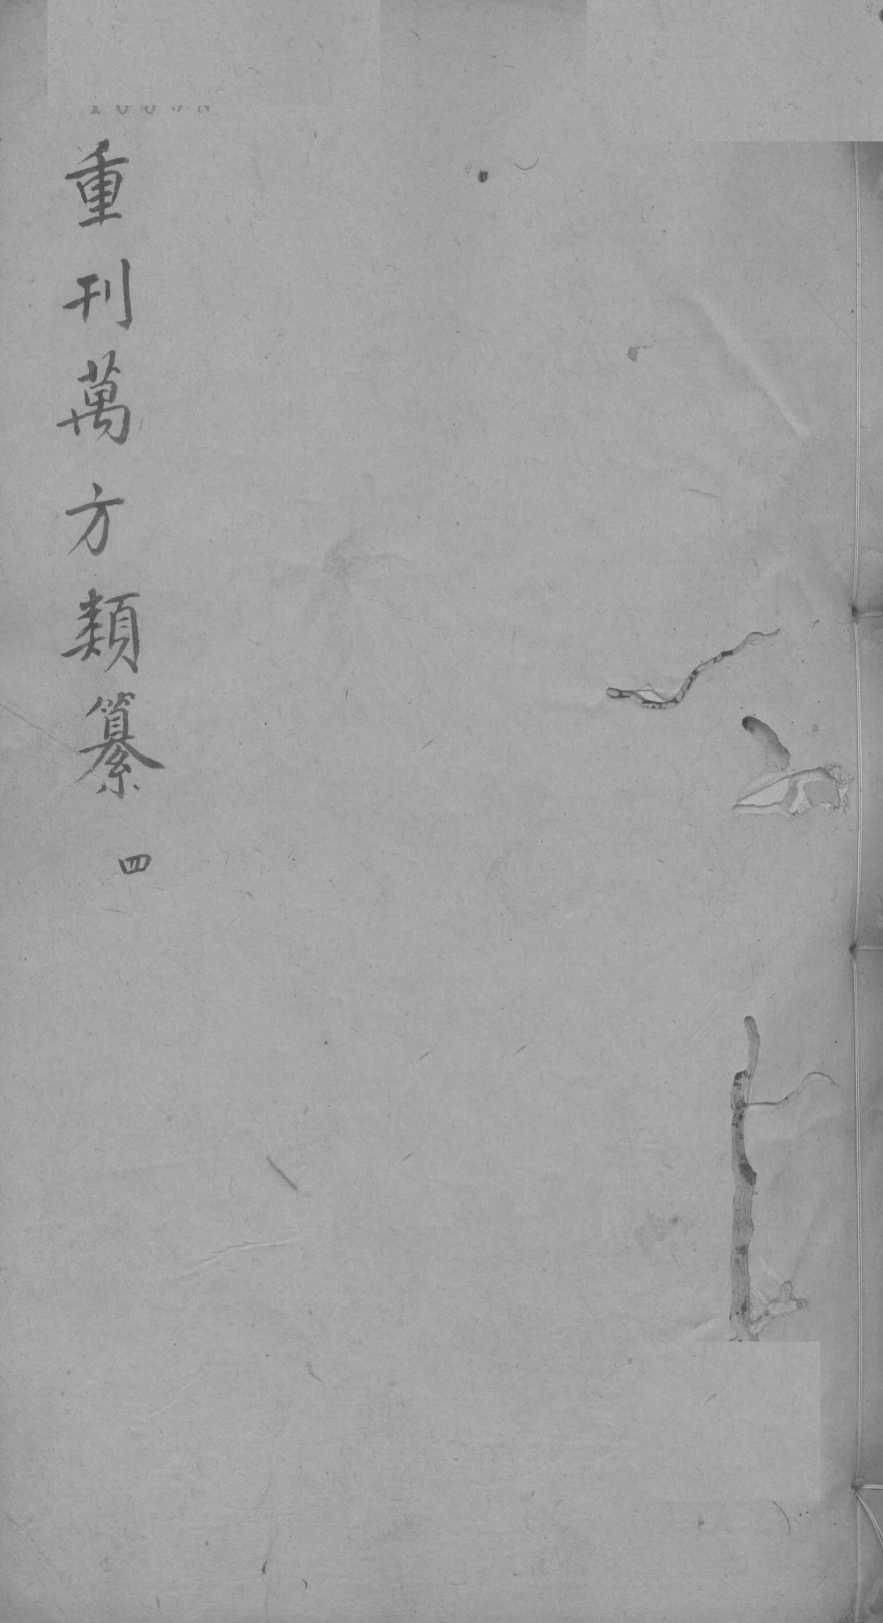 重刊萬方類纂 四